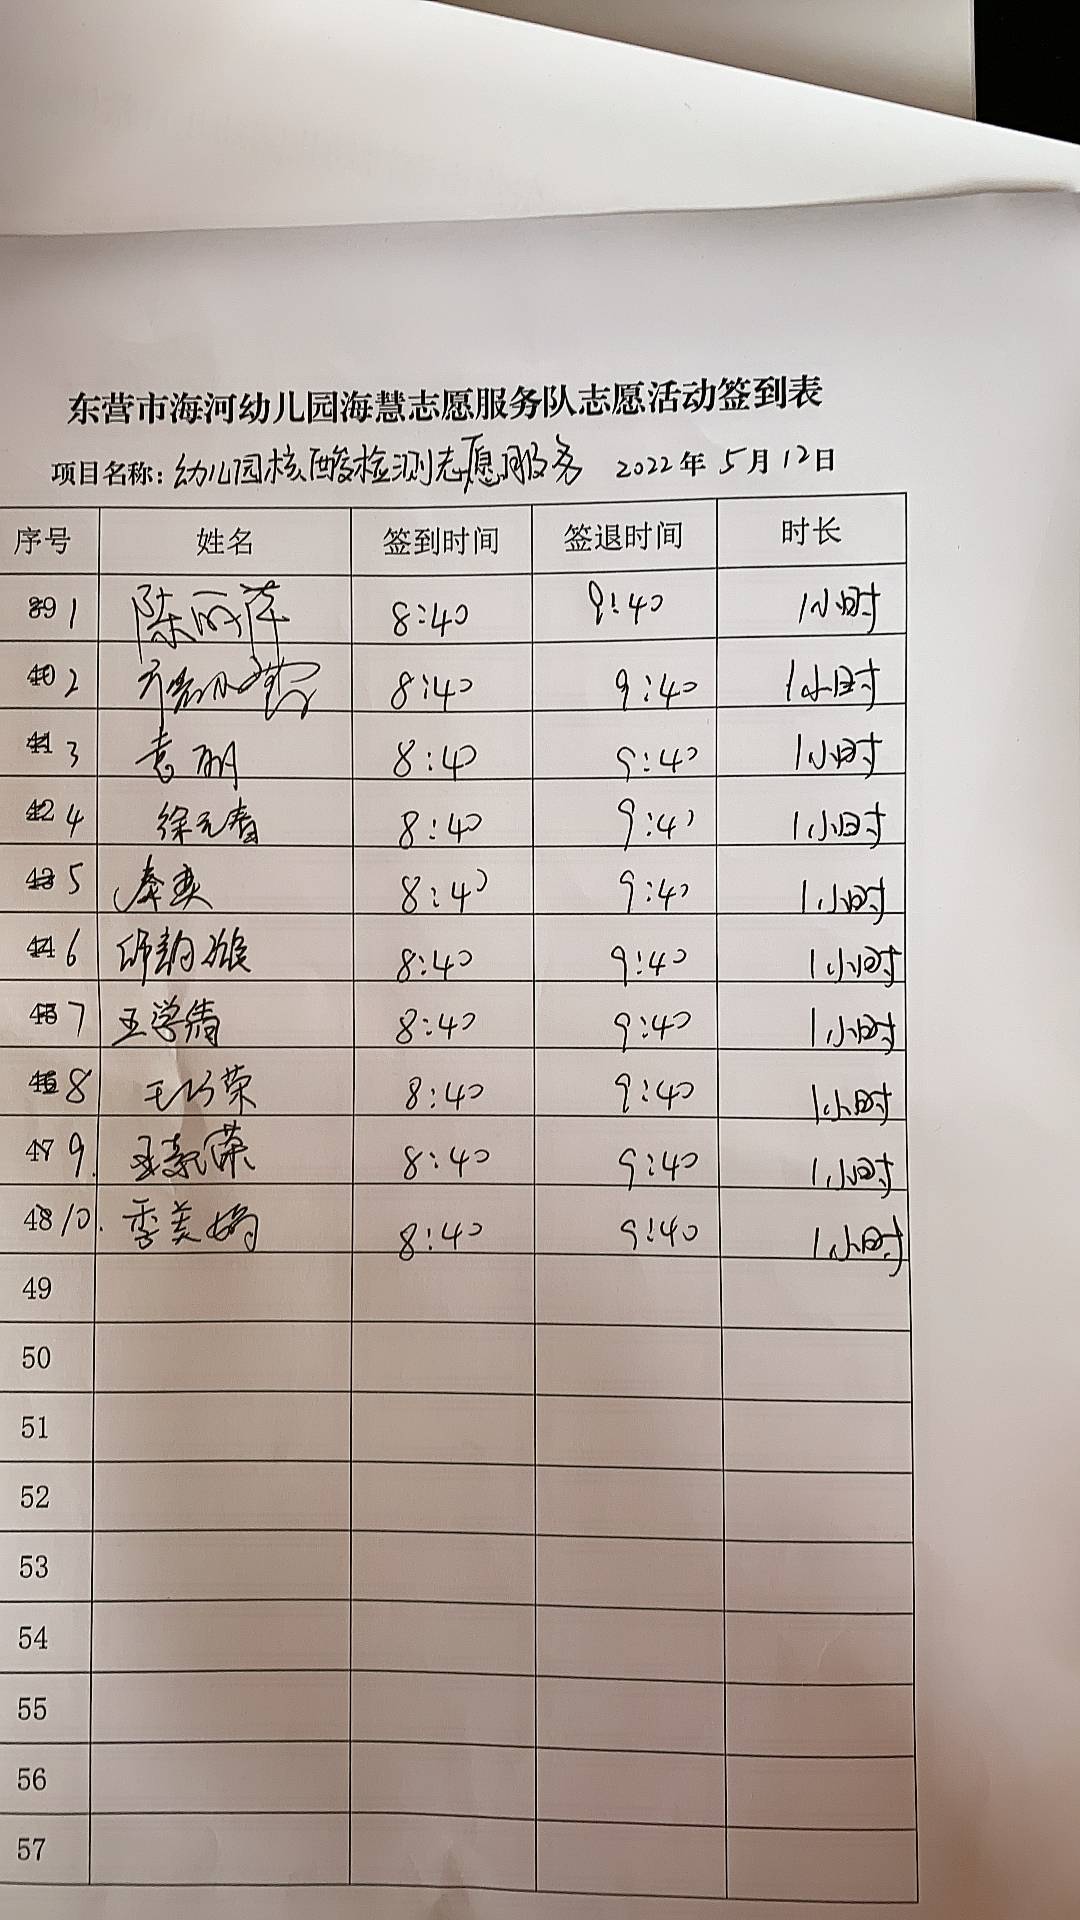 东营市海河幼儿园海慧志愿服务队志愿活动签到表
项目名称：幼儿园核酸检测志愿服务 2022年5月12日
序号 姓名 签到时间 签退时间 时长
39 1 陈丽萍 8:40 9:40 1小时
40 2 8:40 9:40 1小时
41 3 袁丽 8:40 9:40 1小时
42 4 徐元春 8:40 9:40 1小时
43 5 秦爽 8:40 9:40 1小时
44 6 8:40 9:40 1小时
45 7 王学倩 8:40 9:40 1小时
46 8 王巧荣 8:40 9:40 1小时
47 9. 8:40 9:40 1小时
48 10. 季美娟 8:40 9:40 1小时
49
50
51
52
53
54
55
56
57